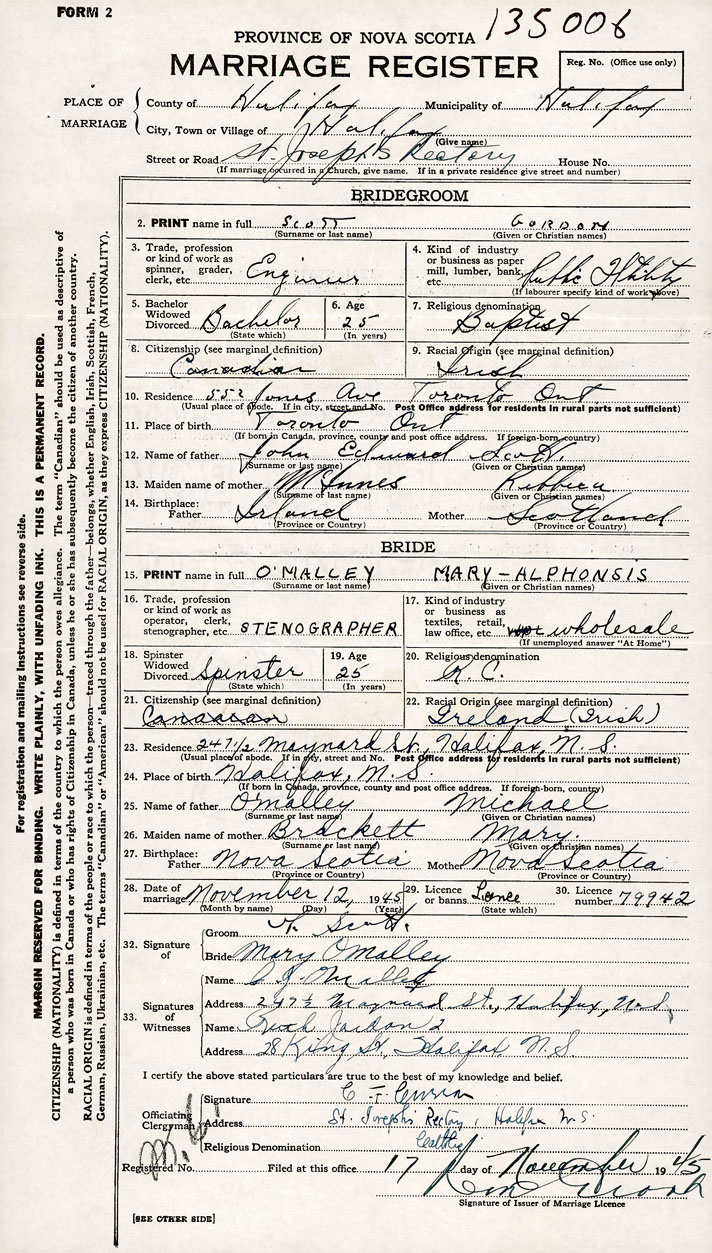 FORM 2
135006
PROVINCE OF NOVA SCOTIA
MARRIAGE REGISTER
Reg. No. (Office use only)
PLACE OF MARRIAGE
County of Halifax Municipality of Halifax
City, Town or Village of Halifax
(Give name)
Street or Road St. Joseph's Rectory House No.
(If marriage occurred in a Church, give name. If in a private residence give street and number)
BRIDEGROOM
2. PRINT name in full SCOTT GORDON
(Surname or last name) (Given or Christian names)
3. Trade, profession or kind of work as spinner, grader, clerk, etc. Engineer
4. Kind of industry or business as paper mill, lumber, bank, etc. Public Utility
(If labourer specify kind of work above)
5. Bachelor Widowed Divorced Bachelor
(State which)
6. Age 25
(In years)
7. Religious denomination Baptist
8. Citizenship (see marginal definition) Canadian
9. Racial Origin (see marginal definition) Irish
10. Residence 552 Jones Ave Toronto Ont.
(Usual place of abode. If in city, street and No. Post Office address for residents in rural parts not sufficient)
11. Place of birth Toronto Ont
(If born in Canada, province, county and post office address. If foreign-born, country)
12. Name of father John Edward Scott.
(Surname or last name) (Given or Christian names)
13. Maiden name of mother McInnes Rebbeca
(Surname or last name) (Given or Christian names)
14. Birthplace: Father Irland Mother Scotland
(Province or Country) (Province or Country)
BRIDE
15. PRINT name in full O'MALLEY MARY-ALPHONSIS
(Surname or last name) (Given or Christian names)
16. Trade, profession or kind of work as operator, clerk, stenographer, etc. STENOGRAPHER
17. Kind of industry or business as textiles, retail, law office, etc. wholesale
(If unemployed answer "At Home")
18. Spinster Widowed Divorced Spinster
(State which)
19. Age 25
(In years)
20. Religious denomination R.C.
21. Citizenship (see marginal definition) Canadian
22. Racial Origin (see marginal definition) Ireland (Irish)
23. Residence 247 1/2 Maynard St., Halifax, N.S.
(Usual place of abode. If in city, street and No. Post Office address for residents in rural parts not sufficient)
24. Place of birth Halifax, N.S.
(If born in Canada, province, county and post office address. If foreign-born, country)
25. Name of father O'malley Michael
(Surname or last name) (Given or Christian names)
26. Maiden name of mother Brackett Mary.
(Surname or last name) (Given or Christian names)
27. Birthplace: Father Nova Scotia Mother Nova Scotia
(Province or Country) (Province or Country)
28. Date of marriage November 12, 1945
(Month by name) (Day) (Year)
29. Licence or banns
(State which)
30. Licence number 79942
32. Signature of
Groom Scott.
Bride Mary O'Malley
33. Signatures of Witnesses
Name
Address 247 1/2 Maynard St., Halifax, N.S.
Name
Address 28 King St. Halifax N.S.
I certify the above stated particulars are true to the best of my knowledge and belief.
Officiating Clergyman
Signature
Address St. Joseph's Rectory, Halifax N.S.
Religious Denomination Catholic
Registered No. Filed at this office 17 day of November 1945
Signature of Issuer of Marriage Licence
[SEE OTHER SIDE]
For registration and mailing instructions see reverse side.
MARGIN RESERVED FOR BINDING. WRITE PLAINLY, WITH UNFADING INK. THIS IS A PERMANENT RECORD.
CITIZENSHIP (NATIONALITY) is defined in terms of the country to which the person owes allegiance. The term "Canadian" should be used as descriptive of
a person who was born in Canada or who has rights of Citizenship in Canada, unless he or she has subsequently become the citizen of another country.
RACIAL ORIGIN is defined in terms of the people or race to which the person—traced through the father—belongs, whether English, Irish, Scottish, French,
German, Russian, Ukrainian, etc. The terms "Canadian" or "American" should not be used for RACIAL ORIGIN, as they express CITIZENSHIP (NATIONALITY).